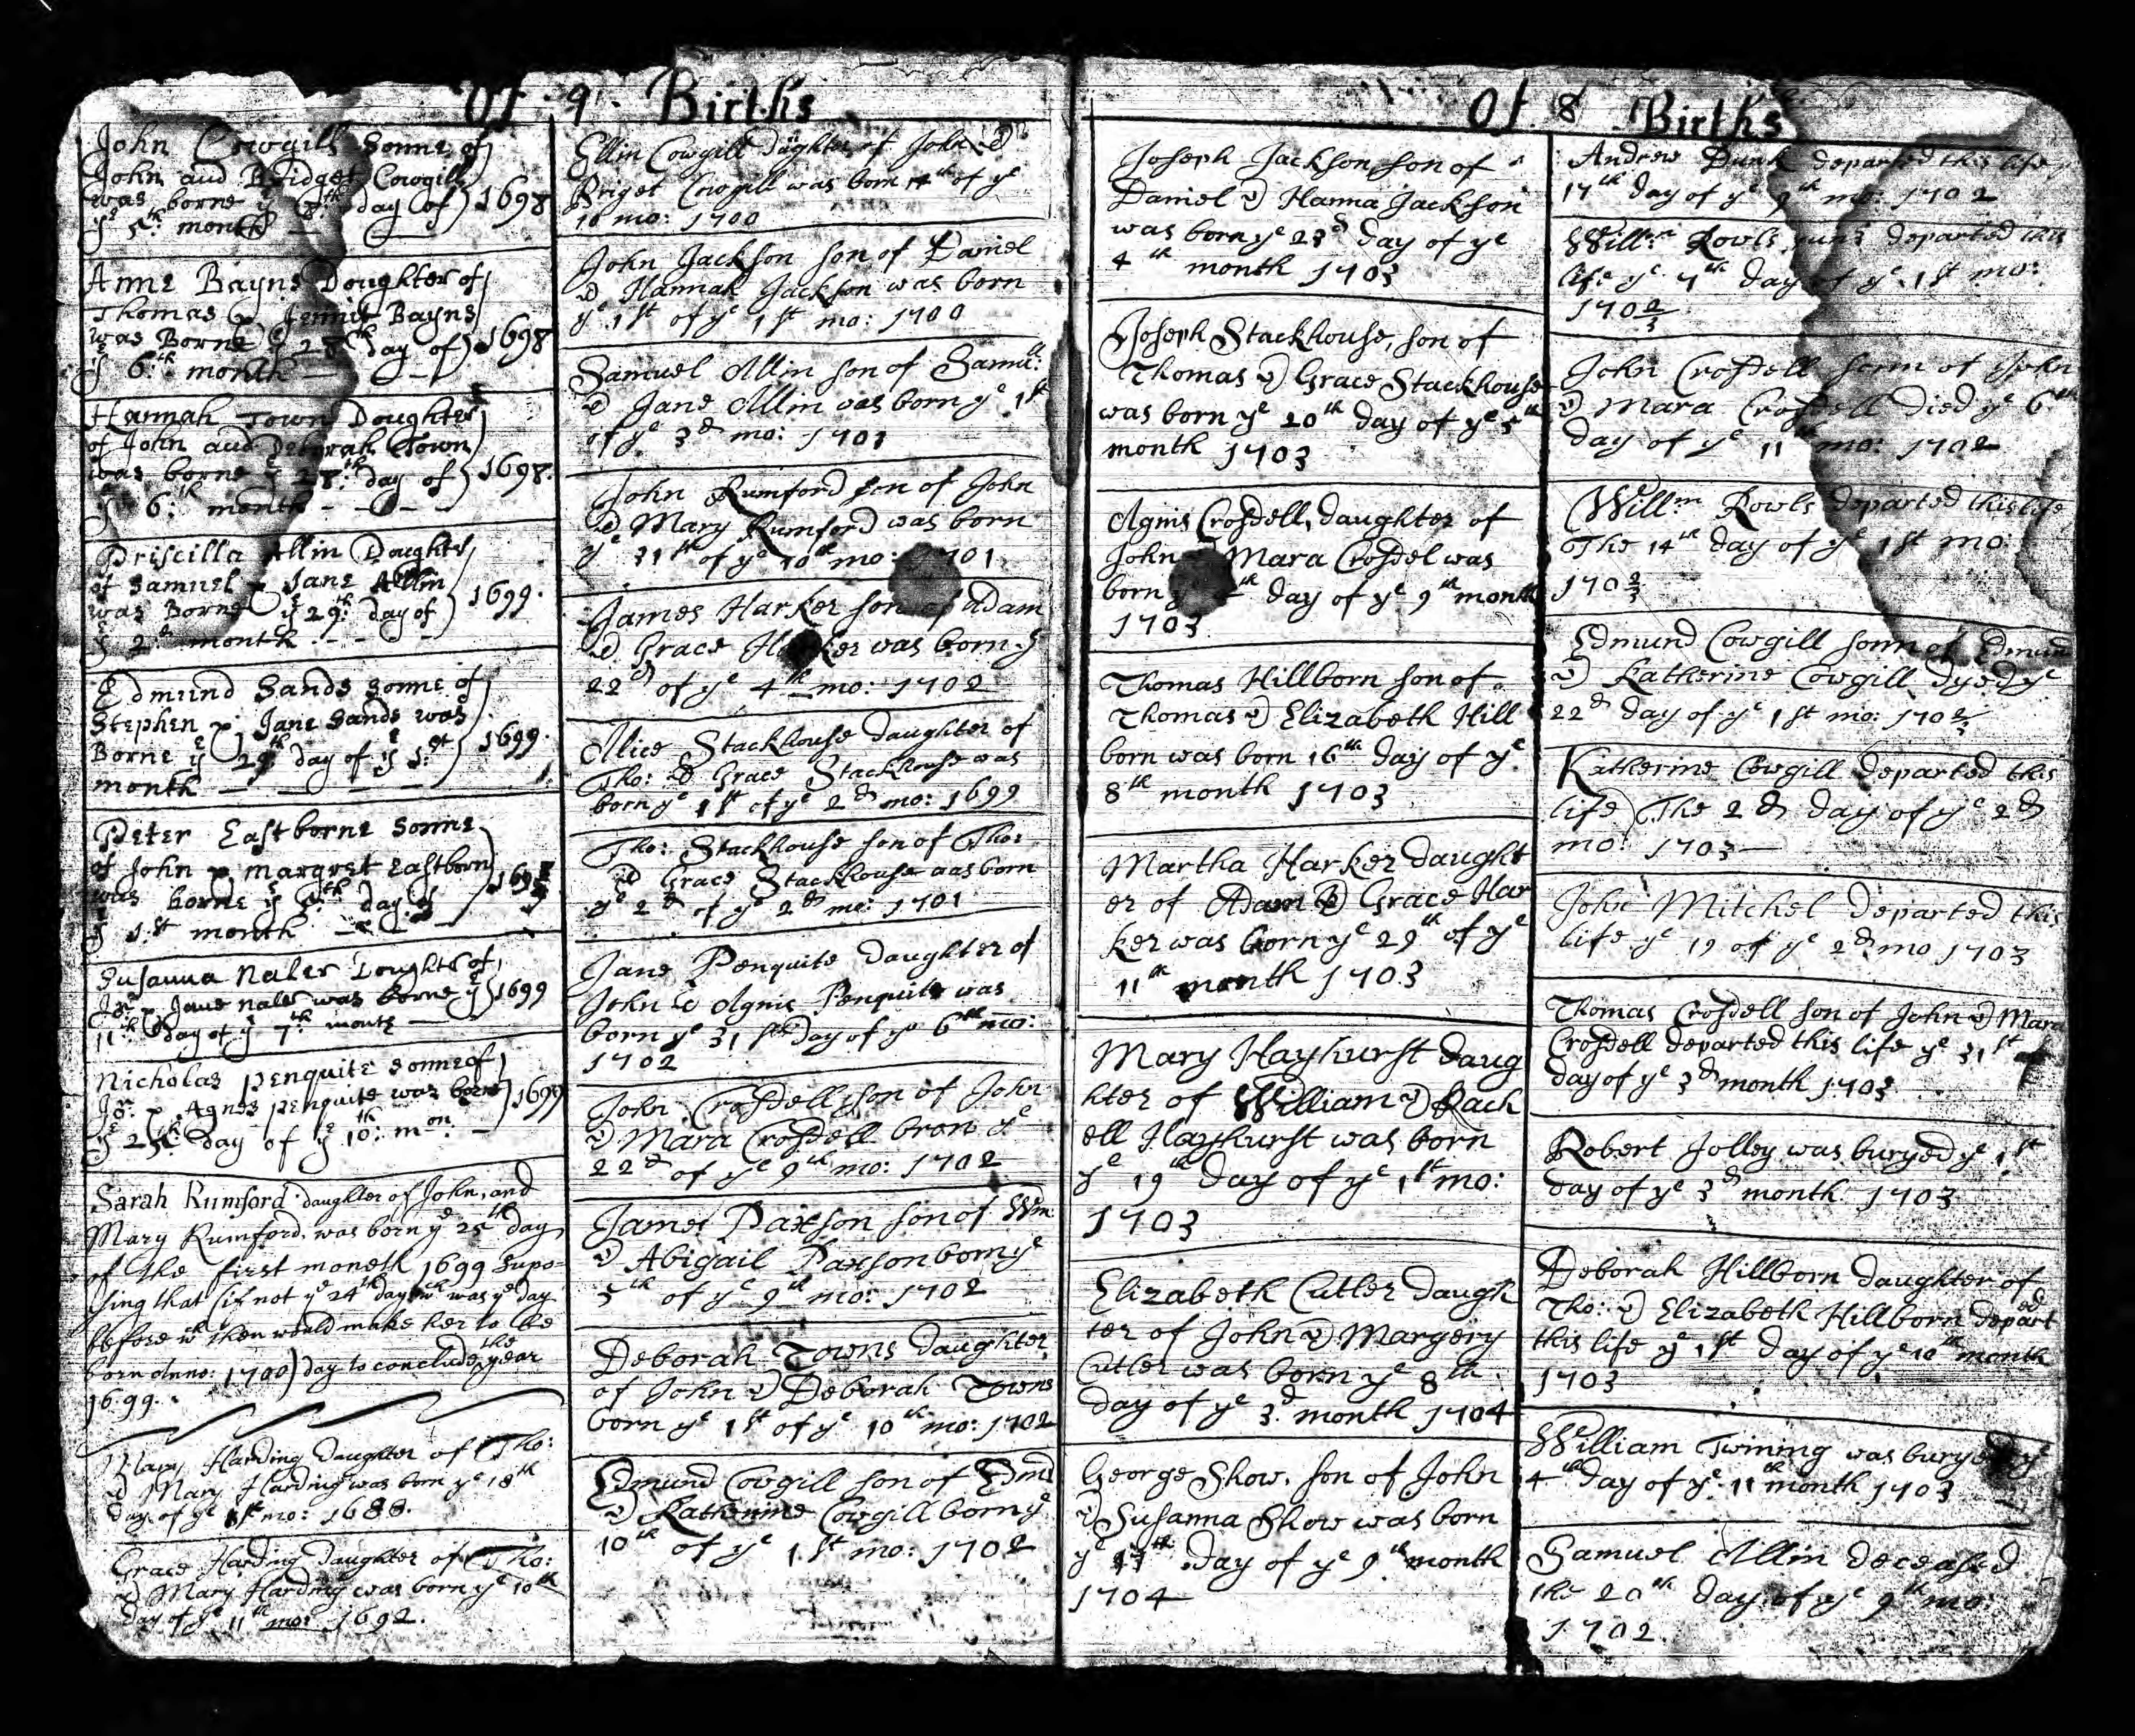 Of 9 Births
John Cowgill Sonne of
John and Bridget Cowgill
was borne ye 8th day of 1698
ye 5th month
Anne Bayns Doughter of
Thomas & Jennit Bayns
was Borne ye 28th day of 1698
ye 6th month
Hannah Town Doughter
of John and Deborah Town
was borne ye 28th day of 1698.
ye 6th month
Priscilla Allin Doughter
of Samuel & Jane Allin
was Borne ye 29th day of 1699.
ye 2d month
Edmund Sands Sonne of
Stephen & Jane Sands was
Borne ye 29th day of ye 1st 1699.
month
Peter Eastborne Sonne
of John & Margret Eastborn
was borne ye day of
ye 1st month
Susanna Naler Doughter of
Jon & Jane Naler was borne ye 1699
11th day of ye 7th month
Nicholas Penquite Sonne of
Jon & Agnes Penquite was borne 1699
ye 25th day of ye 10th mon:
Sarah Rumford daughter of John, and
Mary Rumford, was born ye 25th day
of the first moneth 1699 Supo=
sing that (if not ye 24th day wch was ye day
before wch then would make her to be
born Anno: 1700) day to conclude the year
1699.
Mary Harding Daughter of Tho:
& Mary Harding was born ye 18th
day of ye 1st mo: 1688.
Grace Harding Daughter of Tho:
& Mary Harding was born ye 10th
day of ye 11th mo: 1692.
Ellin Cowgill Daughter of John &
Briget Cowgill was born 14th of ye
10 mo: 1700
John Jackson son of Daniel
& Hannah Jackson was born
ye 1st of ye 1st mo: 1700
Samuel Allin son of Samll:
& Jane Allin was born ye 1st
of ye 3d mo: 1701
John Rumford son of John
& Mary Rumford was born
ye 31th of ye 10th mo: 1701
James Harker son of Adam
& Grace Harker was born ye
22d of ye 4th mo: 1702
Alice Stackhouse daughter of
Tho: & Grace Stackhouse was
born ye 1st of ye 2d mo: 1699
Tho: Stackhouse son of Tho:
& Grace Stackhouse was born
ye 2d of ye 2d mo: 1701
Jane Penquite Daughter of
John & Agnis Penquite was
born ye 31st day of ye 6th mo:
1702
John Crosdell son of John
& Mara Crosdell bron ye
22d of ye 9th mo: 1702
James Paxson son of Wm
& Abigail Paxson born ye
5th of ye 9th mo: 1702
Deborah Towns daughter
of John & Deborah Towns
born ye 1st of ye 10th mo: 1702
Edmund Cowgill son of Edmd
& Katherine Cowgill born ye
10th of ye 1st mo: 1702
Of 8 Births
Joseph Jackson son of
Daniel & Hanna Jackson
was born ye 23d day of ye
4th month 1703
Joseph Stackhouse, son of
Thomas & Grace Stackhouse
was born ye 20th day of ye 5th
month 1703
Agnis Crosdell, daughter of
John Mara Crosdel was
born ye day of ye 9th month
1703
Thomas Hillborn son of
Thomas & Elizabeth Hill
born was born 16th day of ye
8th month 1703
Martha Harker Daught
er of Adam & Grace Har
ker was born ye 29th of ye
11th month 1703
Mary Hayhurst Daug
hter of William & Rach
ell Hayhurst was born
ye 19th day of ye 1st mo:
1703
Elizabeth Cutler Daugh
ter of John & Margery
Cutler was born ye 8th
day of ye 3d month 1704
George Show, son of John
& Susanna Show was born
ye 17th day of ye 9th month
1704
Andrew Dunk departed this life
17th day of ye 9th mo: 1702
Willm Rowls junr departed this
life ye 7th day of ye 1st mo:
170 2/3
John Crosdell sonn of John
& Mara Crosdell died ye 6th
day of ye 11th mo: 1702
Willm Rowls departed this life
The 14th day of ye 1st mo:
170 2/3
Edmund Cowgill sonn of Edmund
& Katherine Cowgill dyed ye
22d day of ye 1st mo: 170 2/3
Katherine Cowgill Departed this
life The 2d day of ye 2d
mo: 1703
John Mitchel Departed this
life ye 19 of ye 2d mo 1703
Thomas Crosdell son of John & Mara
Crosdell departed this life ye 31st
day of ye 3d month 1703
Robert Jolley was buryed ye 1st
day of ye 3d month 1703
Deborah Hillborn daughter of
Tho: & Elizabeth Hillborn departed
this life ye 1st day of ye 10th month
1703
William Twining was buryed ye
4th day of ye 11th month 1703
Samuel Allin deceased
the 20th day of ye 9th mo
1702.